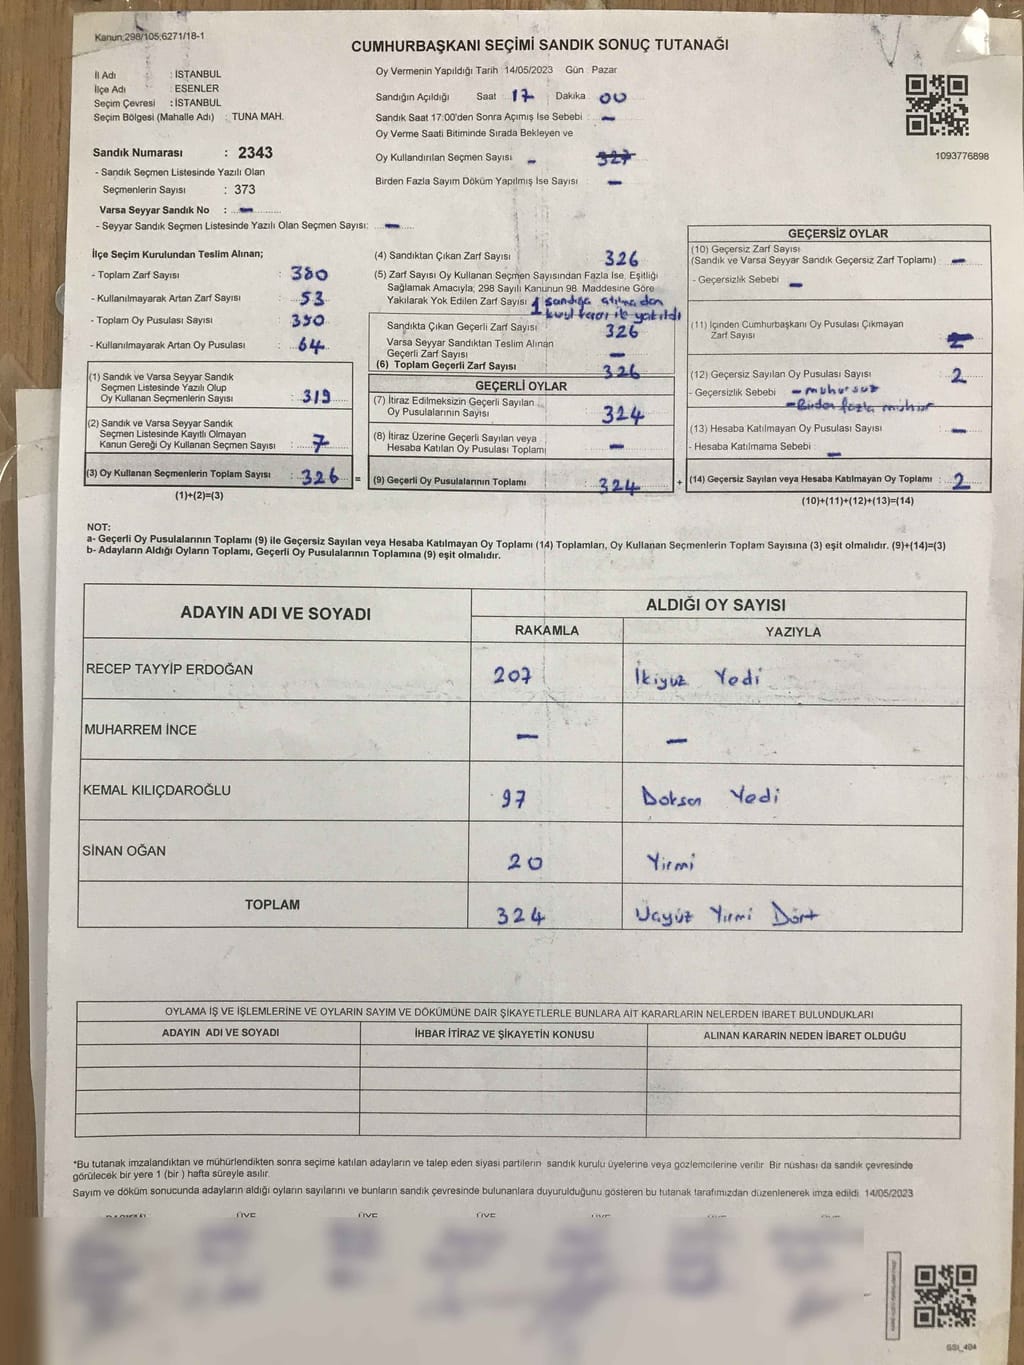 Kanun;298/105;6271/18-1
CUMHURBAŞKANI SEÇİMİ SANDIK SONUÇ TUTANAĞI
İl Adı : İSTANBUL
İlçe Adı : ESENLER
Seçim Çevresi : İSTANBUL
Seçim Bölgesi (Mahalle Adı) : TUNA MAH.
Sandık Numarası : 2343
- Sandık Seçmen Listesinde Yazılı Olan
Seçmenlerin Sayısı : 373
Varsa Seyyar Sandık No : -
- Seyyar Sandık Seçmen Listesinde Yazılı Olan Seçmen Sayısı: -
Oy Vermenin Yapıldığı Tarih 14/05/2023 Gün Pazar
Sandığın Açıldığı Saat 17 Dakika 00
Sandık Saat 17:00'den Sonra Açımış İse Sebebi : -
Oy Verme Saati Bitiminde Sırada Bekleyen ve
Oy Kullandırılan Seçmen Sayısı - 327
Birden Fazla Sayım Döküm Yapılmış İse Sayısı : -
1093776898
İlçe Seçim Kurulundan Teslim Alınan;
- Toplam Zarf Sayısı : 380
- Kullanılmayarak Artan Zarf Sayısı : 53
- Toplam Oy Pusulası Sayısı : 390
- Kullanılmayarak Artan Oy Pusulası : 64
(1) Sandık ve Varsa Seyyar Sandık
Seçmen Listesinde Yazılı Olup
Oy Kullanan Seçmenlerin Sayısı : 319
(2) Sandık ve Varsa Seyyar Sandık
Seçmen Listesinde Kayıtlı Olmayan
Kanun Gereği Oy Kullanan Seçmen Sayısı : 7
(3) Oy Kullanan Seçmenlerin Toplam Sayısı : 326 =
(1)+(2)=(3)
(4) Sandıktan Çıkan Zarf Sayısı 326
(5) Zarf Sayısı Oy Kullanan Seçmen Sayısından Fazla İse, Eşitliği
Sağlamak Amacıyla; 298 Sayılı Kanunun 98. Maddesine Göre
Yakılarak Yok Edilen Zarf Sayısı 1 sandığa atılmadan
kurul kararı ile yakıldı
Sandıkta Çıkan Geçerli Zarf Sayısı 326
Varsa Seyyar Sandıktan Teslim Alınan
Geçerli Zarf Sayısı -
(6) Toplam Geçerli Zarf Sayısı 326
GEÇERLİ OYLAR
(7) İtiraz Edilmeksizin Geçerli Sayılan
Oy Pusulalarının Sayısı : 324
(8) İtiraz Üzerine Geçerli Sayılan veya
Hesaba Katılan Oy Pusulası Toplamı -
(9) Geçerli Oy Pusulalarının Toplamı : 324 +
GEÇERSİZ OYLAR
(10) Geçersiz Zarf Sayısı
(Sandık ve Varsa Seyyar Sandık Geçersiz Zarf Toplamı) : -
- Geçersizlik Sebebi : -
(11) İçinden Cumhurbaşkanı Oy Pusulası Çıkmayan
Zarf Sayısı
(12) Geçersiz Sayılan Oy Pusulası Sayısı : 2
- Geçersizlik Sebebi - mühürsüz
- Birden fazla mühür
(13) Hesaba Katılmayan Oy Pusulası Sayısı : -
- Hesaba Katılmama Sebebi : -
(14) Geçersiz Sayılan veya Hesaba Katılmayan Oy Toplamı : 2
(10)+(11)+(12)+(13)=(14)
NOT:
a- Geçerli Oy Pusulalarının Toplamı (9) ile Geçersiz Sayılan veya Hesaba Katılmayan Oy Toplamı (14) Toplamları, Oy Kullanan Seçmenlerin Toplam Sayısına (3) eşit olmalıdır. (9)+(14)=(3)
b- Adayların Aldığı Oyların Toplamı, Geçerli Oy Pusulalarının Toplamına (9) eşit olmalıdır.
ADAYIN ADI VE SOYADI
ALDIĞI OY SAYISI
RAKAMLA YAZIYLA
RECEP TAYYİP ERDOĞAN 207 İkiyüz Yedi
MUHARREM İNCE - -
KEMAL KILIÇDAROĞLU 97 Doksan Yedi
SİNAN OĞAN 20 Yirmi
TOPLAM 324 Üçyüz Yirmi Dört
OYLAMA İŞ VE İŞLEMLERİNE VE OYLARIN SAYIM VE DÖKÜMÜNE DAİR ŞİKAYETLERLE BUNLARA AİT KARARLARIN NELERDEN İBARET BULUNDUKLARI
ADAYIN ADI VE SOYADI İHBAR İTİRAZ VE ŞİKAYETİN KONUSU ALINAN KARARIN NEDEN İBARET OLDUĞU
*Bu tutanak imzalandıktan ve mühürlendikten sonra seçime katılan adayların ve talep eden siyasi partilerin sandık kurulu üyelerine veya gözlemcilerine verilir. Bir nüshası da sandık çevresinde
görülecek bir yere 1 (bir ) hafta süreyle asılır.
Sayım ve döküm sonucunda adayların aldığı oyların sayılarını ve bunların sandık çevresinde bulunanlara duyurulduğunu gösteren bu tutanak tarafımızdan düzenlenerek imza edildi. 14/05/2023
ÜYE ÜYE ÜYE ÜYE